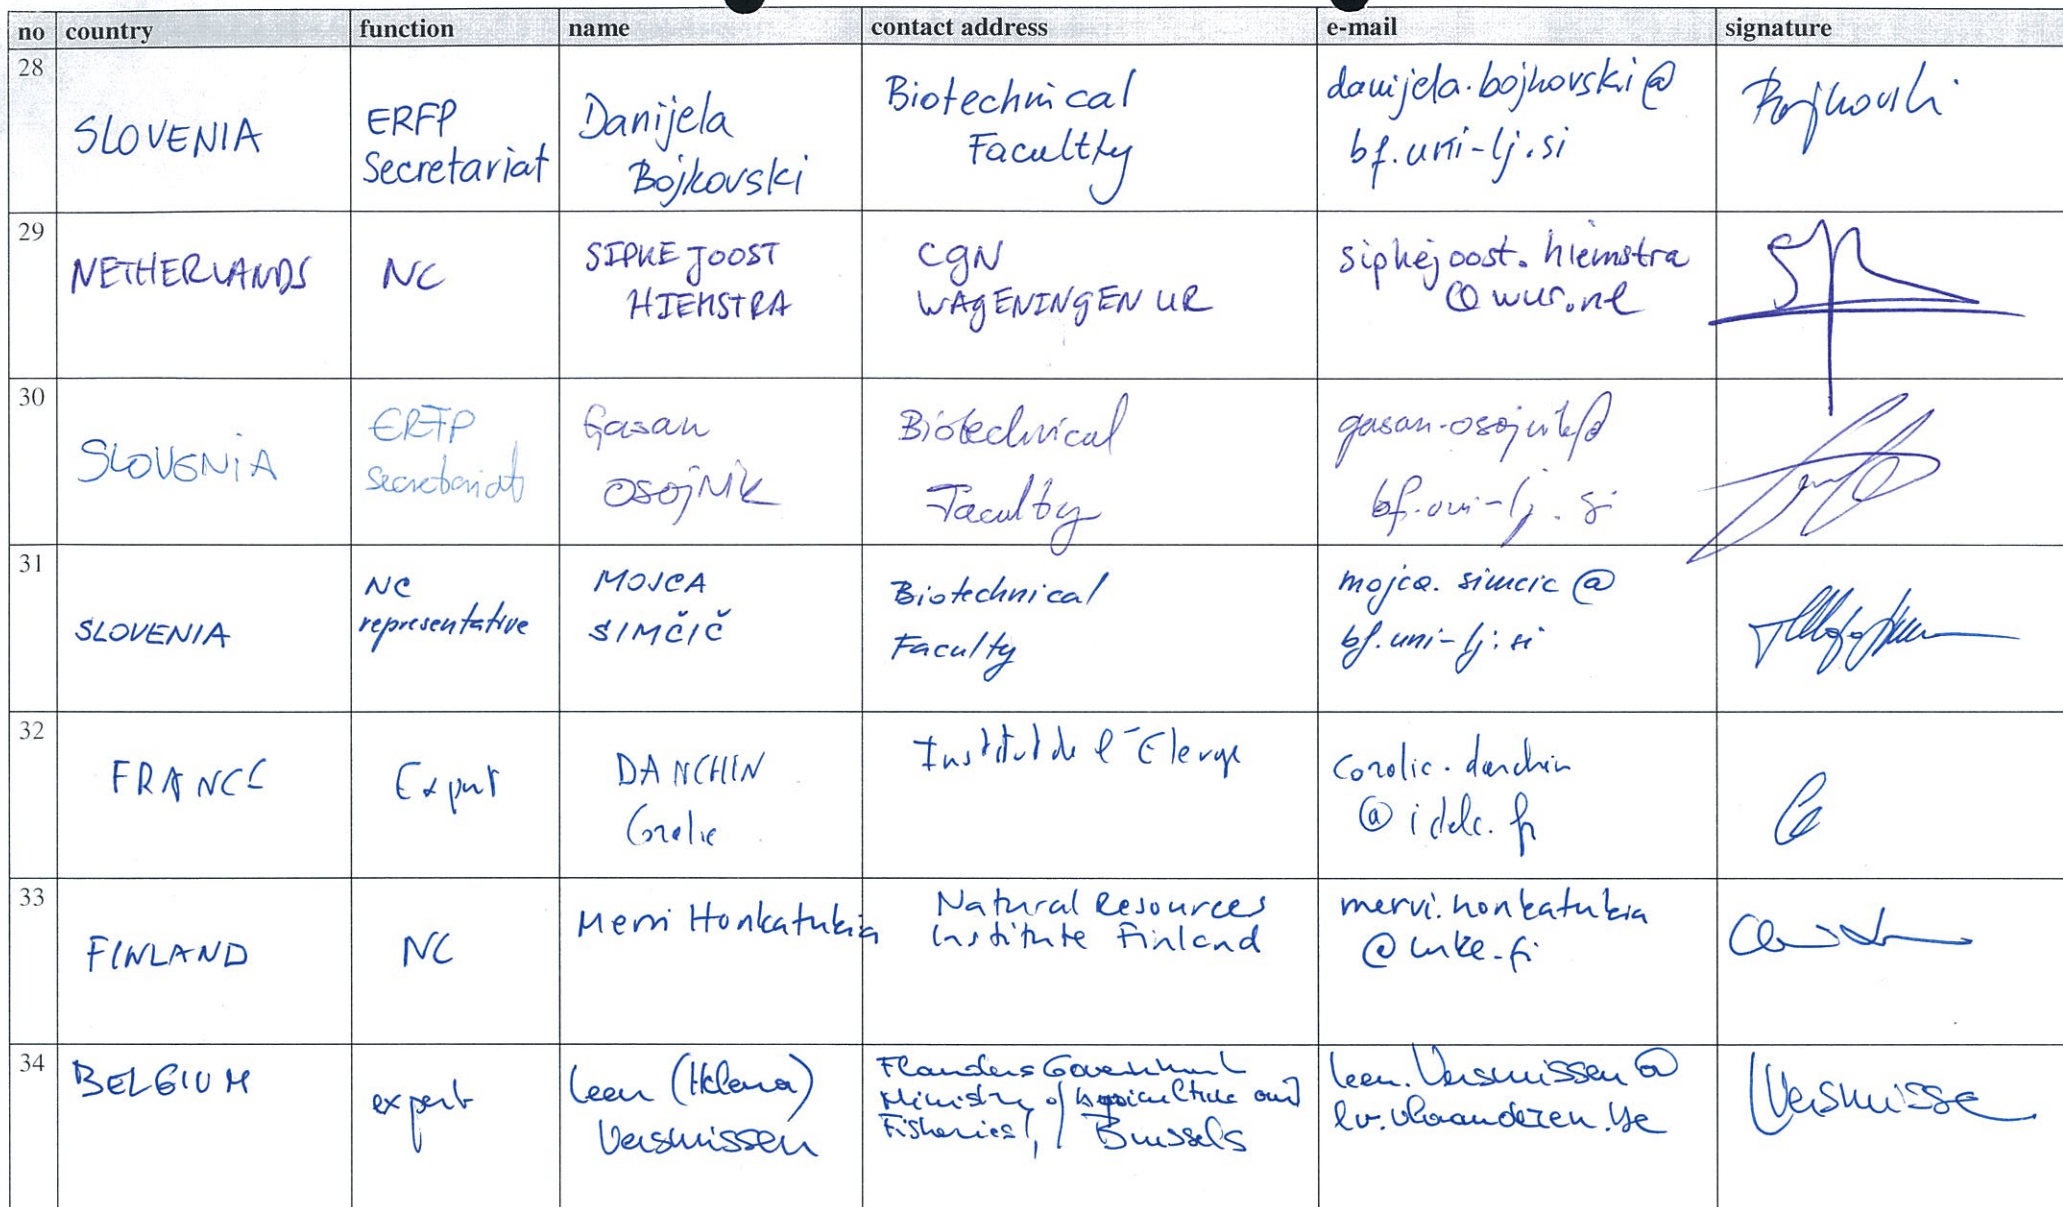 no country function name contact address e-mail signature
28
SLOVENIA
ERFP
Secretariat
Danijela
Bojkovski
Biotechnical
Facultty
danijela.bojkovski@
bf.uni-lj.si
Bojkovski
29
NETHERLANDS
NC
SIPKE JOOST
HIEMSTRA
CGN
WAGENINGEN UR
sipkejoost.hiemstra
@wur.nl
30
SLOVENiA
ERFP
Secretariat
Gasan
OSOjNik
Biotechnical
Faculty
gasan.osojnik@
bf.uni-lj.si
31
SLOVENIA
NC
representative
MOJCA
SIMČIČ
Biotechnical
Faculty
mojca.simcic@
bf.uni-lj.si
32
FRANCE
Expert
DANCHIN
Coralie
Institut de l'Elevage
coralie.danchin
@idele.fr
33
FINLAND
NC
Mervi Honkatukia
Natural Resources
Institute Finland
mervi.honkatukia
@luke.fi
34
BELGIUM
expert
Leen (Helena)
Versmissen
Flanders Government
Ministry of Agriculture and
Fisheries, Brussels
leen.Versmissen@
lv.vlaanderen.be